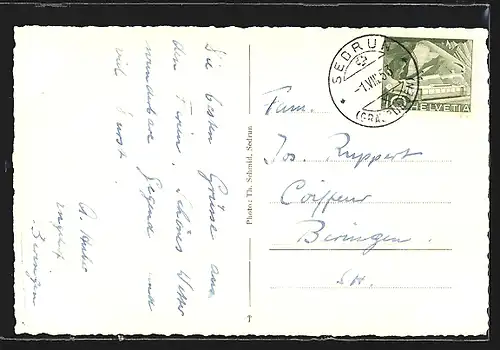 Die besten Grüsse aus
den Ferien. Schönes Wetter
wunderbare Gegend und
viel Durst.
A. Huber
Beringen
Photo: Th. Schmid, Sedrun
T
SEDRUN
-1.VIII.53
(GRAUBÜNDEN)
10 HELVETIA
Fam.
Jos. Ruppert
Coiffeur
Beringen.
SH.